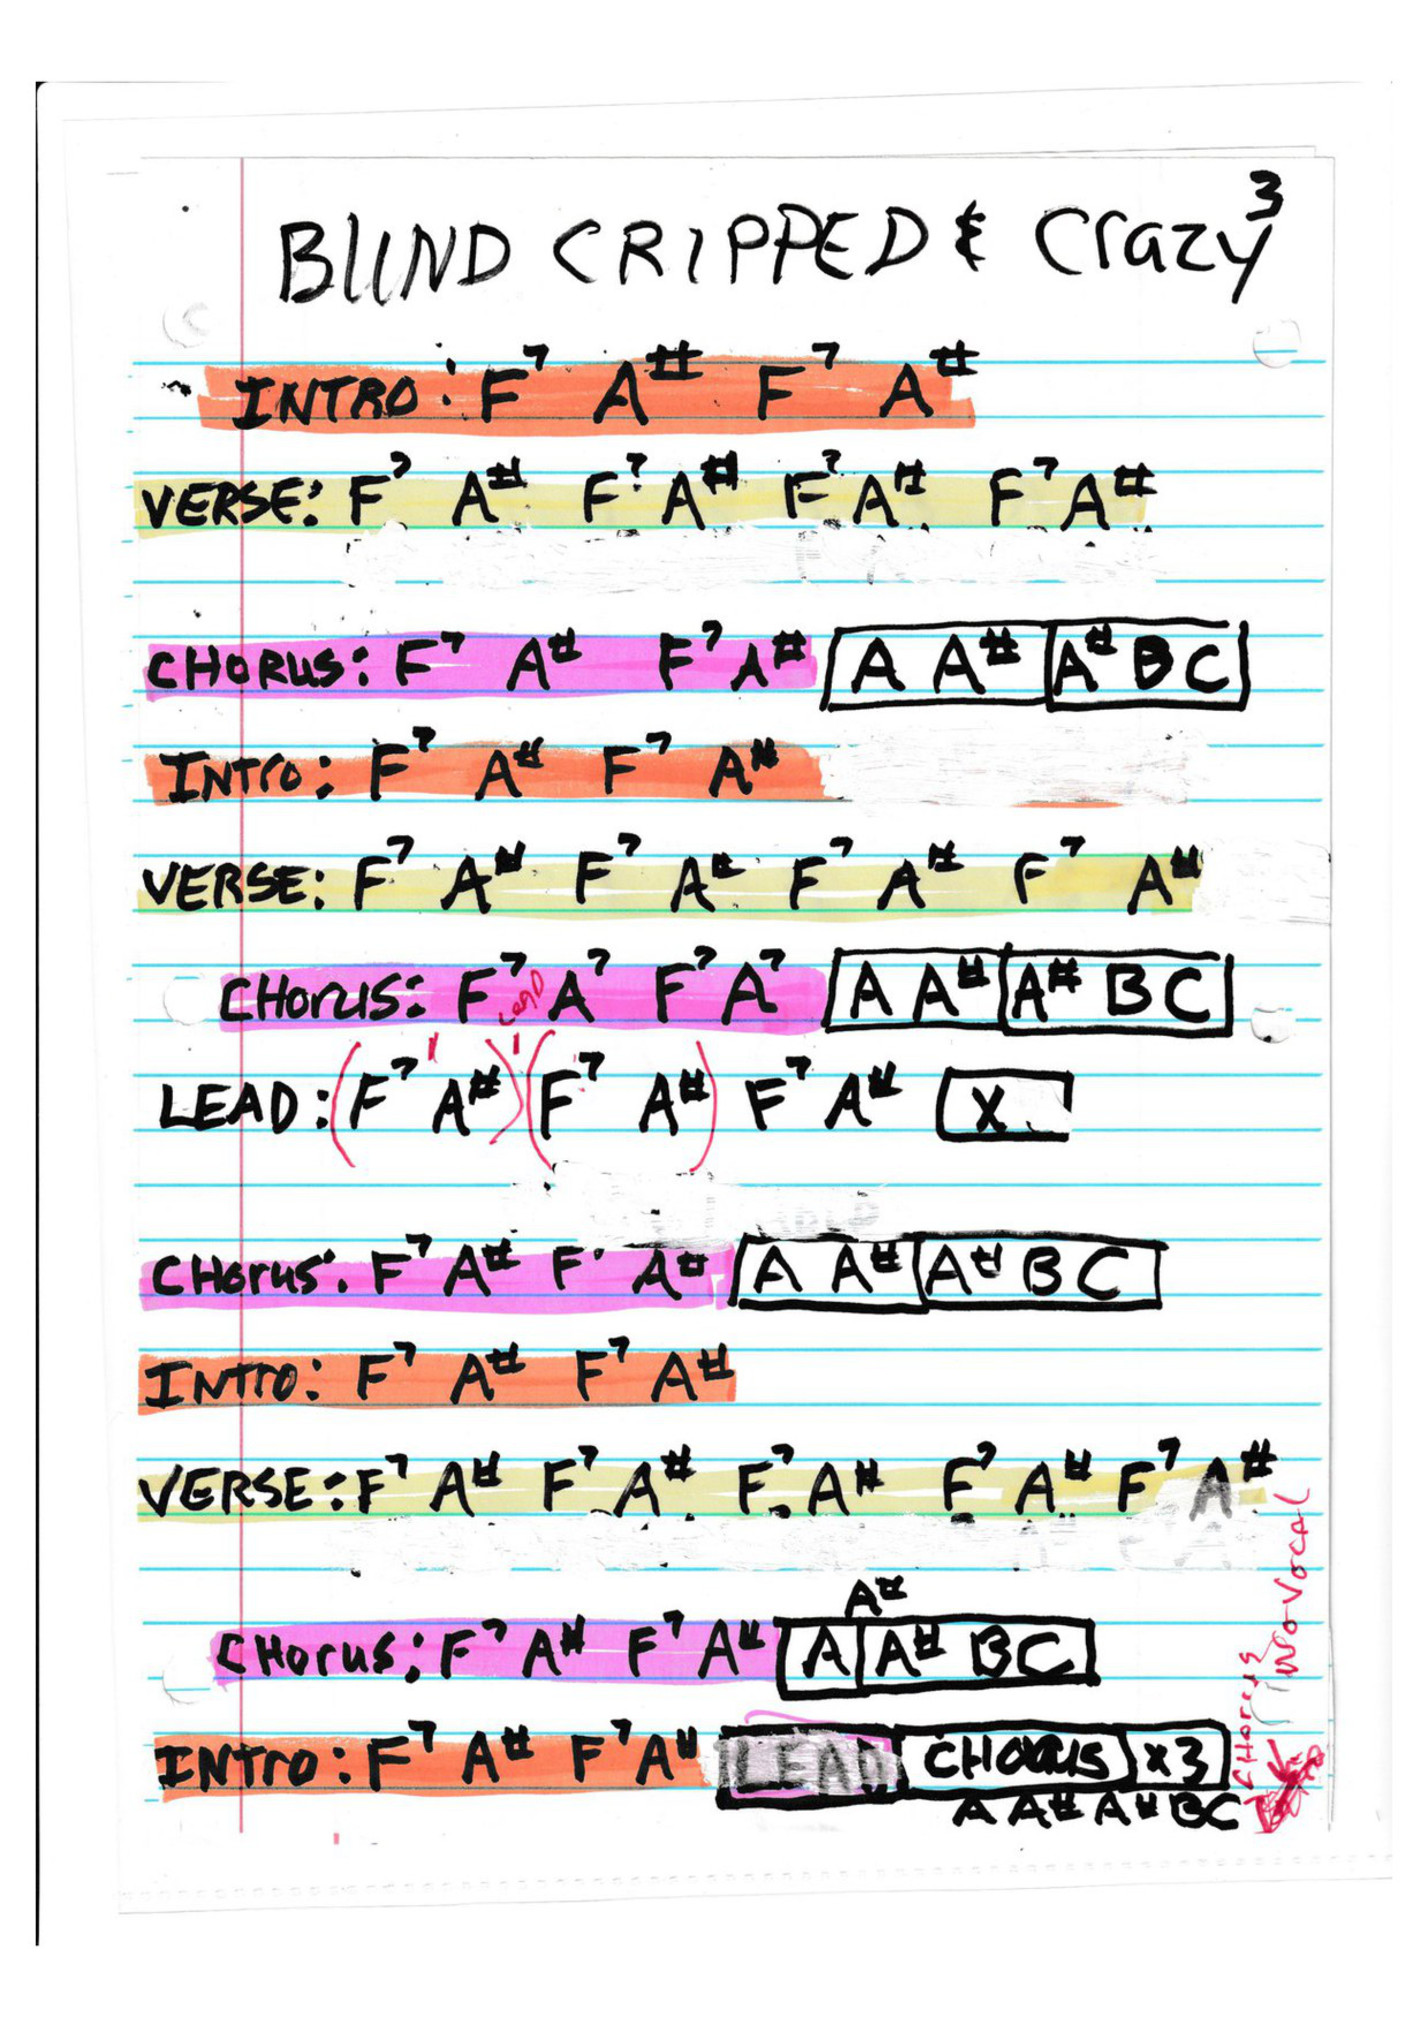 BLIND CRIPPED & Crazy 3
INTRO: F7 A# F7 A#
VERSE: F7 A# F7 A# F7 A# F7 A#
CHORUS: F7 A# F7 A# A A# A# B C
INTrO: F7 A# F7 A#
VERSE: F7 A# F7 A# F7 A# F7 A#
CHorus: F7 A7 F7 A7 A A# A# B C
LEAD
LEAD: (F7 A#) (F7 A#) F7 A# X
CHorus: F7 A# F A# A A# A# B C
INTrO: F7 A# F7 A#
VERSE: F7 A# F7 A# F7 A# F7 A# F7 A#
A#
CHorus: F7 A# F7 A# A A# B C
INTrO: F7 A# F7 A# LEAD CHORUS x3
A A# A# B C
CHorus
No Vocal